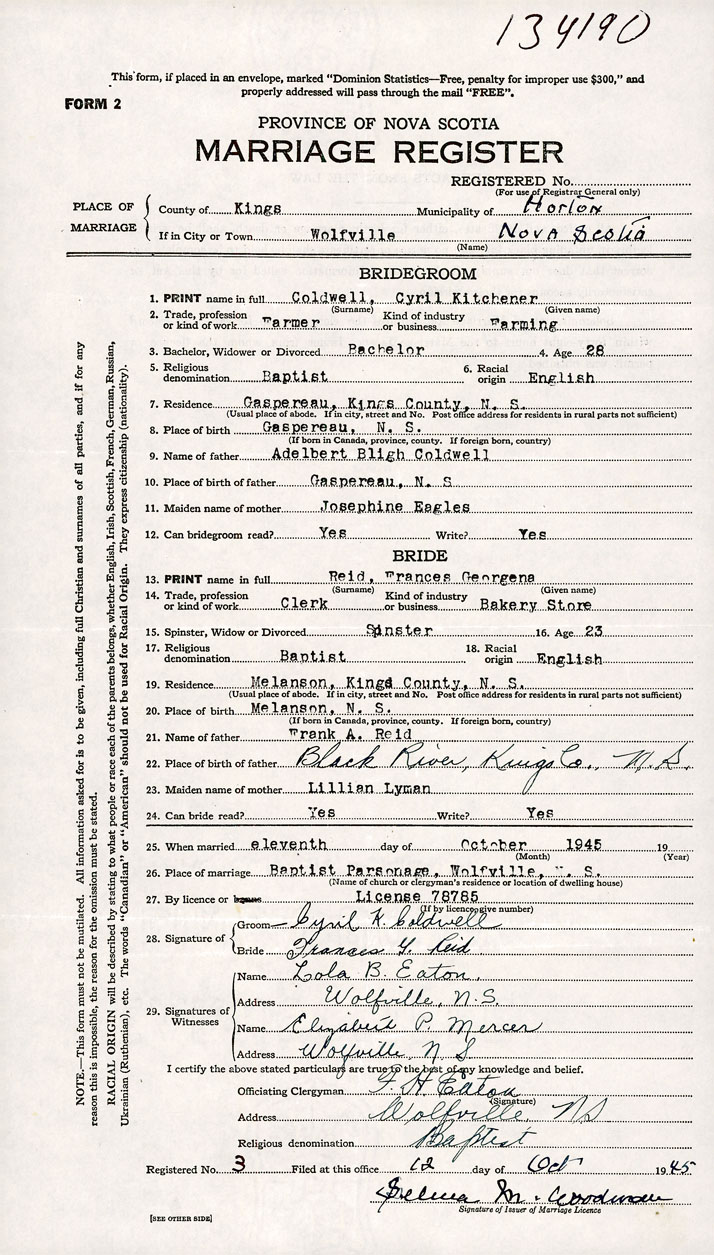 134190
This form, if placed in an envelope, marked "Dominion Statistics—Free, penalty for improper use $300," and
properly addressed will pass through the mail "FREE".
FORM 2
PROVINCE OF NOVA SCOTIA
MARRIAGE REGISTER
REGISTERED No.
(For use of Registrar General only)
PLACE OF MARRIAGE
County of Kings Municipality of Horton
If in City or Town Wolfville Nova Scotia
(Name)
BRIDEGROOM
1. PRINT name in full Coldwell, Cyril Kitchener
(Surname) (Given name)
2. Trade, profession or kind of work Farmer Kind of industry or business Farming
3. Bachelor, Widower or Divorced Bachelor 4. Age 28
5. Religious denomination Baptist 6. Racial origin English
7. Residence Gaspereau, Kings County, N. S.
(Usual place of abode. If in city, street and No. Post office address for residents in rural parts not sufficient)
8. Place of birth Gaspereau, N. S.
(If born in Canada, province, county. If foreign born, country)
9. Name of father Adelbert Bligh Coldwell
10. Place of birth of father Gaspereau, N. S
11. Maiden name of mother Josephine Eagles
12. Can bridegroom read? Yes Write? Yes
BRIDE
13. PRINT name in full Reid, Frances Georgena
(Surname) (Given name)
14. Trade, profession or kind of work Clerk Kind of industry or business Bakery Store
15. Spinster, Widow or Divorced Spinster 16. Age 23
17. Religious denomination Baptist 18. Racial origin English
19. Residence Melanson, Kings County, N. S.
(Usual place of abode. If in city, street and No. Post office address for residents in rural parts not sufficient)
20. Place of birth Melanson, N. S.
(If born in Canada, province, county. If foreign born, country)
21. Name of father Frank A. Reid
22. Place of birth of father Black River, Kings Co., N.S.
23. Maiden name of mother Lillian Lyman
24. Can bride read? Yes Write? Yes
25. When married eleventh day of October 1945 19
(Month) (Year)
26. Place of marriage Baptist Parsonage, Wolfville, N. S.
(Name of church or clergyman's residence or location of dwelling house)
27. By licence or License 78785
(If by licence give number)
28. Signature of
Groom Cyril K. Coldwell
Bride Frances G. Reid
29. Signatures of Witnesses
Name Lola B. Eaton.
Address Wolfville, N.S.
Name Elizabeth P. Mercer
Address Wolfville, N S
I certify the above stated particulars are true to the best of my knowledge and belief.
Officiating Clergyman F. H. Eaton
(Signature)
Address Wolfville, NS
Religious denomination Baptist
Registered No. 3 Filed at this office 12 day of Oct 19 45
Selina M. Woodman
Signature of Issuer of Marriage Licence
[SEE OTHER SIDE]
NOTE.—This form must not be mutilated. All information asked for is to be given, including full Christian and surnames of all parties, and if for any
reason this is impossible, the reason for the omission must be stated.
RACIAL ORIGIN will be described by stating to what people or race each of the parents belongs, whether English, Irish, Scottish, French, German, Russian,
Ukrainian (Ruthenian), etc. The words "Canadian" or "American" should not be used for Racial Origin. They express citizenship (nationality).